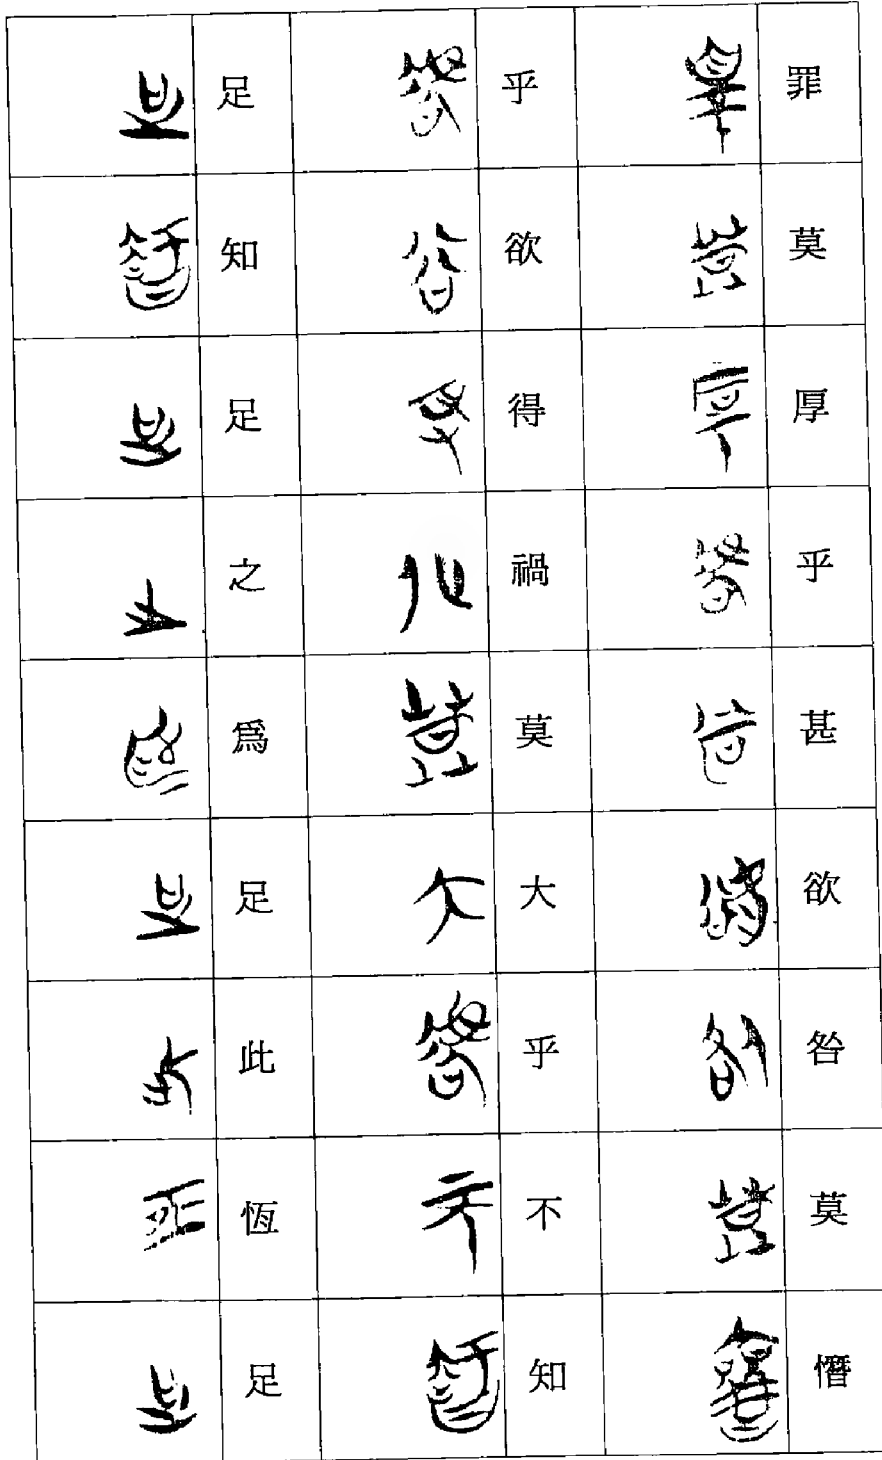 罪莫厚乎甚欲咎莫憯
乎欲得禍莫大乎不知
足知足之爲足此恆足